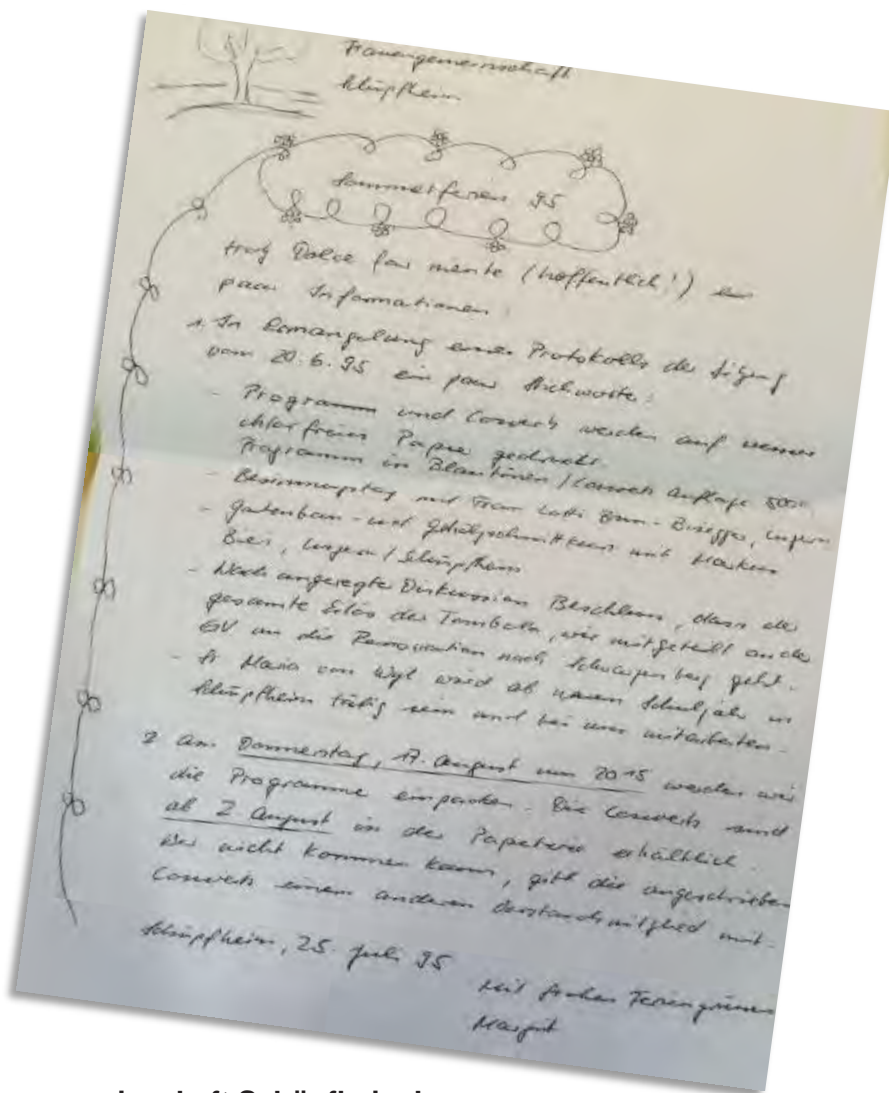 Frauengemeinschaft
Schüpfheim
Sommerferien 95
trotz Dolce far niente (hoffentlich!) ein
paar Informationen:
1. In Ermangelung eines Protokolls der Sitzung
vom 20.6.95 ein paar Stichworte:
- Programm und Couverts werden auf
chlorfreies Papier gedruckt.
Programm in Blautönen / Couverts Auflage
- Besinnungstag mit Frau Lotti Brun-Bissegger, Luzern
- Gartenbau- und mit Markus
Bieri, Luzern / Schüpfheim
- Nach angeregter Diskussion Beschluss, dass der
gesamte Erlös der Tombola, wie mitgeteilt an der
GV an die Renovation nach Schwarzenberg geht.
- Sr Maria von Wyl wird ab neuem Schuljahr in
Schüpfheim tätig sein und bei uns mitarbeiten.
2 Am Donnerstag, 17. August um 20 15 werden wir
die Programme einpacken. Die Couverts sind
ab 2. August in der Papeterie erhältlich.
Wer nicht kommen kann, gibt die angeschriebenen
Couverts einem anderen Vorstandsmitglied mit.
Schüpfheim, 25. Juli 95
Mit frohen Feriengrüssen
Margrit